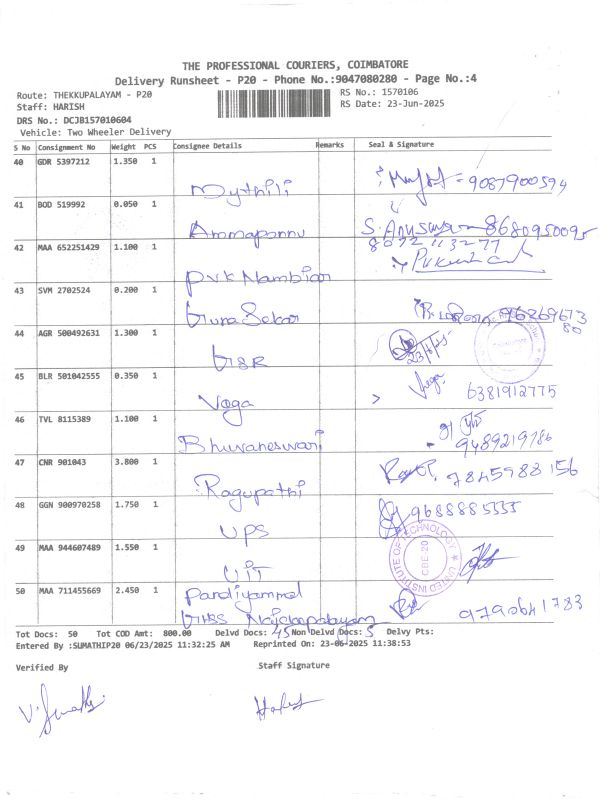 THE PROFESSIONAL COURIERS, COIMBATORE
Delivery Runsheet - P20 - Phone No.:9047080280 - Page No.:4
Route: THEKKUPALAYAM - P20
RS No.: 1570106
Staff: HARISH
RS Date: 23-Jun-2025
DRS No.: DCJB157010604
Vehicle: Two Wheeler Delivery
S No Consignment No Weight PCS Consignee Details Remarks Seal & Signature
40 GDR 5397212 1.350 1
Mythili 9087900594
41 BOD 519992 0.050 1
Ammaponnu S. Anusaya 8680950095
42 MAA 652251429 1.100 1 8072113277
PVK Nambiar
43 SVM 2702524 0.200 1
Guna Sekar
44 AGR 500492631 1.300 1
GSR 23/6/25
45 BLR 501042555 0.350 1
Yoga 6381912775
46 TVL 8115389 1.100 1
Bhuvaneswari 9489219786
47 CNR 901043 3.800 1
Ragupathi 7845988156
48 GGN 900970258 1.750 1 9688885335
UPS
49 MAA 944607489 1.550 1
UIT
UNITED INSTITUTE OF TECHNOLOGY
CBE-20
50 MAA 711455669 2.450 1 Pandiyammal
9790641783
Tot Docs: 50 Tot COD Amt: 800.00 Delvd Docs: 45 Non Delvd Docs: 5 Delvy Pts:
Entered By :SUMATHIP20 06/23/2025 11:32:25 AM Reprinted On: 23-06-2025 11:38:53
Verified By Staff Signature